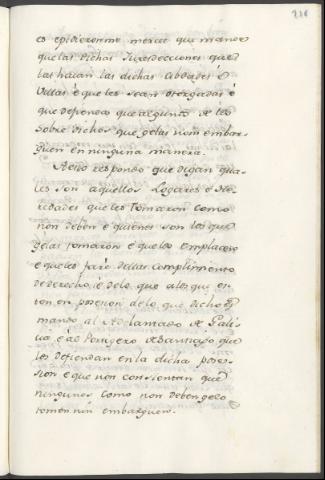 es epidieronme merced que mande
que las dichas Jurisdicciones que
las hayan las dichas Cibdades é
Villas é que les sean otorgadas é
que defienda que alguno de los
sobre dichos que gelas non embar-
guen en ninguna manera.
A esto respondo que digan qua-
les son aquellos Logares é He-
redades que les tomaron como
non deben é quienes son los que
gelas tomaron é que los emplacen
é que les faré dellas complimiento
de derecho, é de lo que a los que es-
ton en posesion de lo que dicho es
mando al Adelantado de Gali-
cia é al Pertigero de Santiago que
les defiendan en la dicha pose-
sion é que non consientan que
ningunos como non deben gelo
tomen nin embarguen.